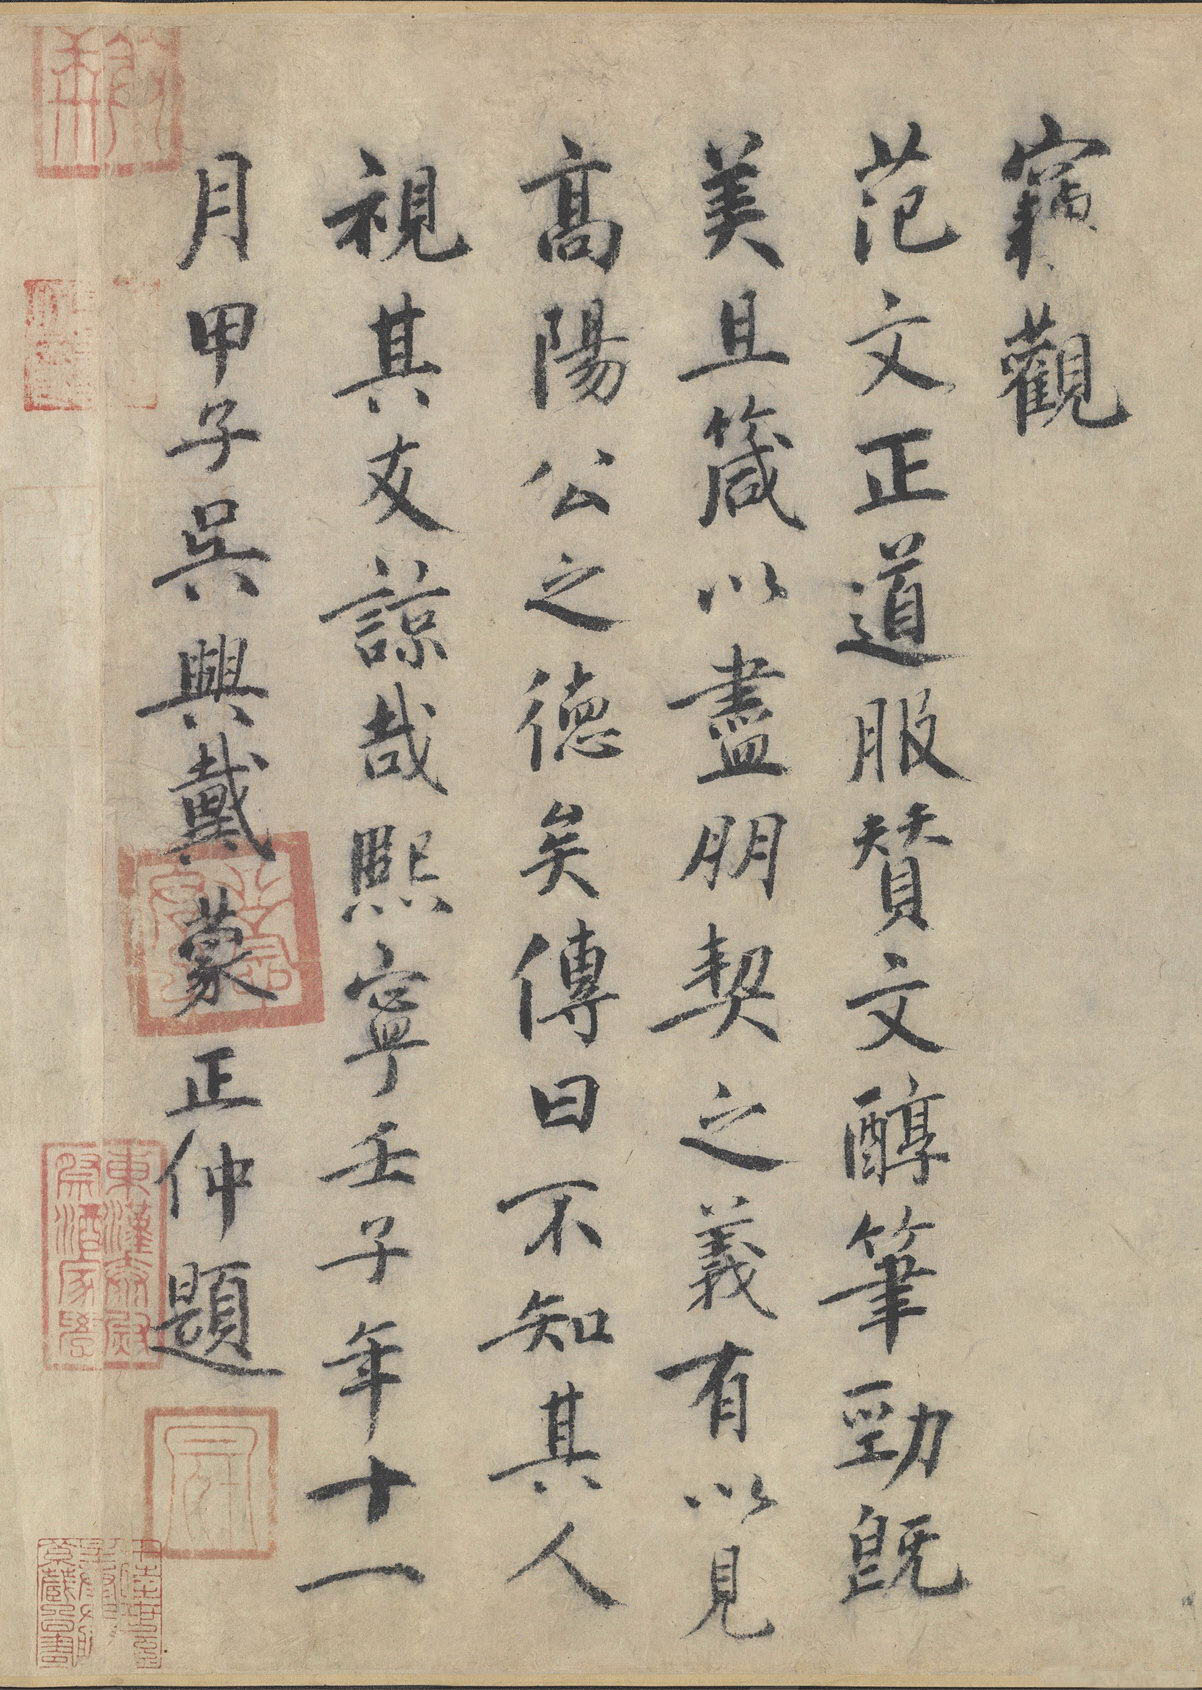 竊觀
范文正道服賛文醇筆勁既
美且箴以盡朋契之義有以見
髙陽公之德矣傳曰不知其人
視其友諒哉熙寧壬子年十一
月甲子吳興戴蒙正仲題
東漢太尉
祭酒家學